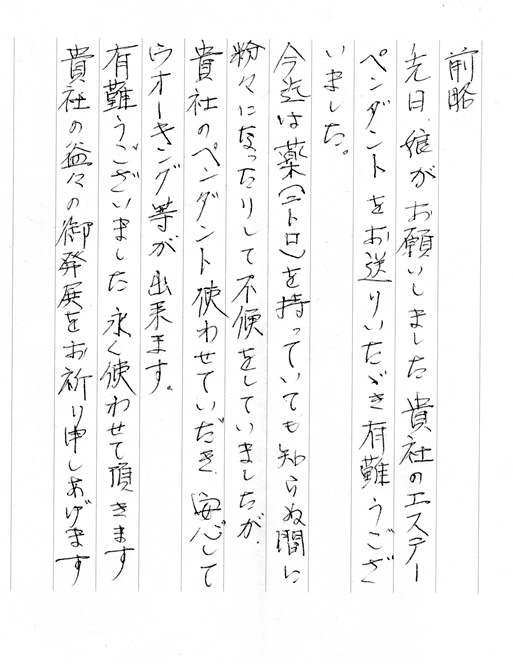 前略
先日、娘がお願いしました貴社のエステー
ペンダントをお送りいたゞき有難うござ
いました。
今迄は薬(ニトロ)を持っていても知らぬ間に
粉々になったりして不便をしていましたが、
貴社のペンダント使わせていだき、安心して
ウオーキング等が出来ます。
有難うございました 永く使わせて頂きます
貴社の益々の御発展をお祈り申しあげます